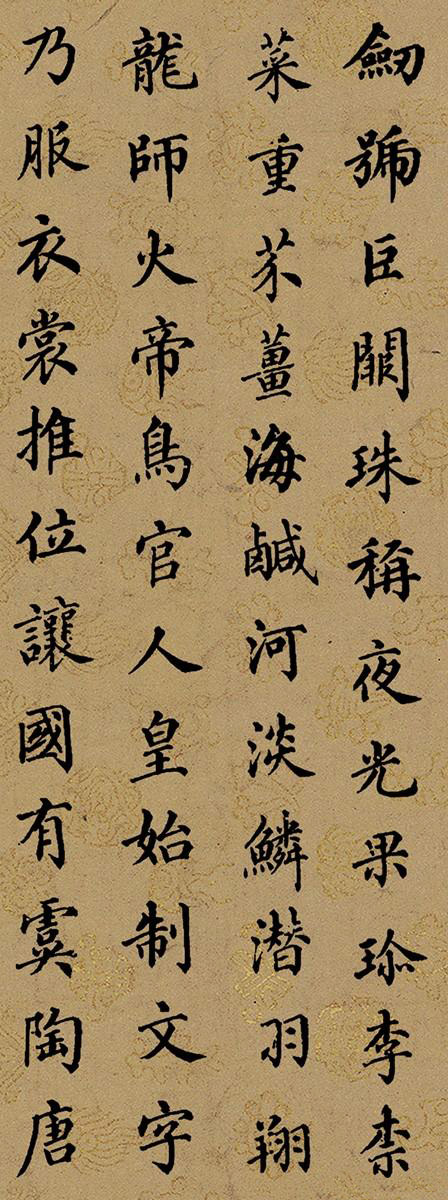 劒號巨闕珠稱夜光果珍李柰
菜重芥薑海鹹河淡鱗潛羽翔
龍師火帝鳥官人皇始制文字
乃服衣裳推位讓國有虞陶唐